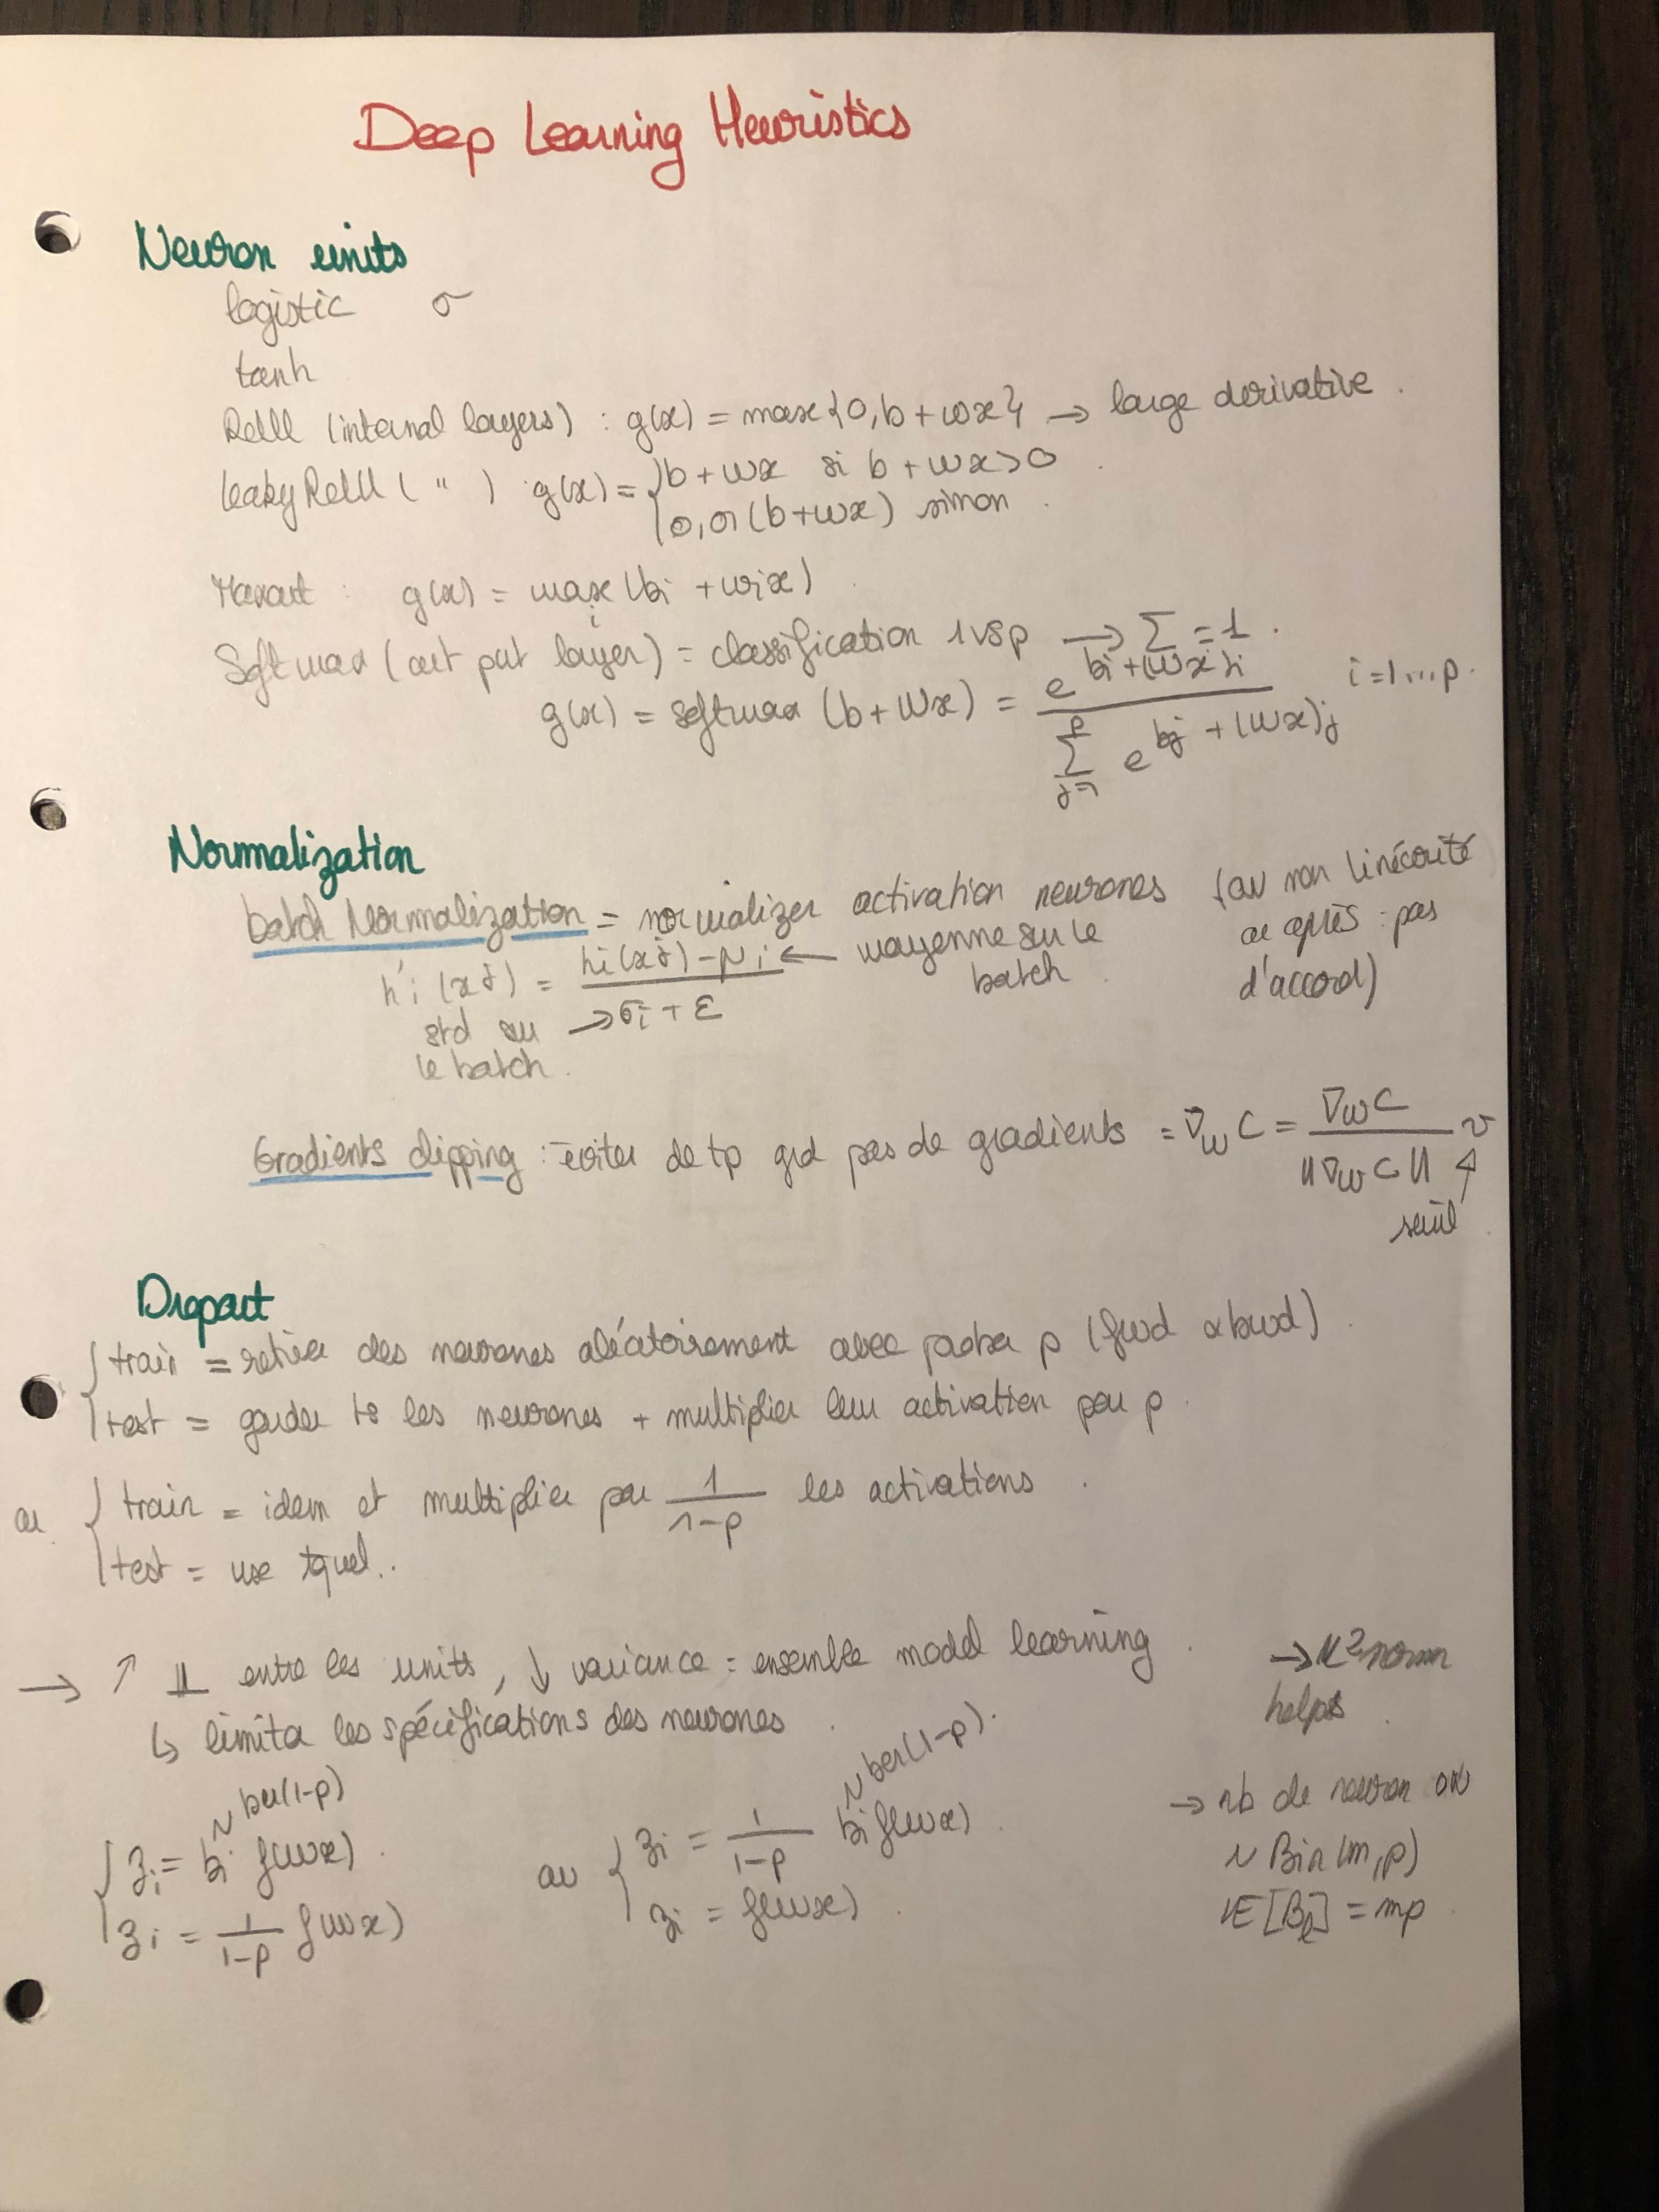 Deep Learning Heuristics
Neuron units
logistic σ
tanh
ReLU (internal layers) : g(x) = max{0, b + wx} → large derivative.
Leaky ReLU ( " ) g(x) = { b + wx si b + wx > 0
0,01(b + wx) sinon
Maxout : g(x) = max_i (bi + wix)
Softmax (out put layer) = classification 1 vs p → Σ = 1.
g(x) = softmax (b + Wx) = e^{bi + (Wx)i} / Σ_{j=1}^{p} e^{bj + (Wx)j} i = 1...p.
Normalization
batch Normalization = normalizer activation neurones (av non linéarité
ou après : pas
d'accord)
h'i (xj) = (hi(xj) - μi) / (σi + ε) ← moyenne sur le
batch
std sur →
le batch.
Gradients clipping : éviter de tp grd pas de gradients = ∇w C = ∇w C / ||∇w C|| v
seuil
Dropout
{ train = retirer des neurones aléatoirement avec proba p (fwd & bwd)
test = garder ts les neurones + multiplier leur activation par p
ou { train = idem et multiplier par 1/(1-p) les activations
test = use tquel..
→ ↑ ⫫ entre les units, ↓ variance = ensemble model learning
↳ limita les spécifications des neurones
→ norm
helps
{ zi = bi f(wx) ~ ber(1-p)
zi = 1/(1-p) f(wx)
ou { zi = 1/(1-p) bi f(wx) ~ ber(1-p).
zi = f(wx)
→ nb de neuron ON
~ Bin(m, p)
E[Bl] = mp